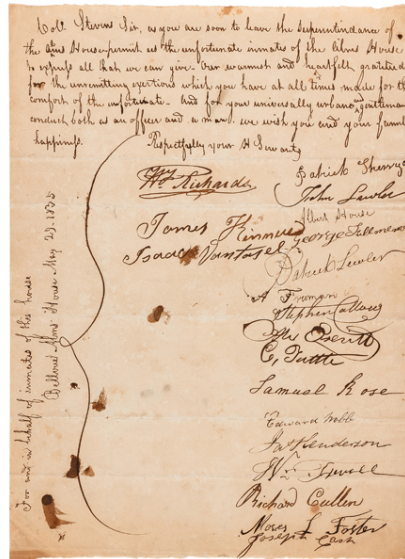 Colo. Stevens Sir, as you are soon to leave the Superintendance of
the Alms House permit us the unfortunate inmates of the Alms House
to express all that we can give Our warmest and heartfelt gratitude
for the unremitting exertions which you have at all times made for the
comfort of the unfortunate. And for your universally urbane gentleman
conduct both as an officer and a man. we wish you and your famil
happiness.
Respectfully your H Sewarts
Wm Richards
James
Isaac Vantasel
Patrick Sherry
John Lawlor
Albert House
George
Patrick Lawler
A Freeman
Stephen
Everitt
C, Tuttle
Samuel Rose
Edward Webb
Jas Henderson
Wm
Richard Cullen
Moses L Foster
Joseph Cash
For and in behalf of inmates of this house
Bellvue Alms House May 23. 1835